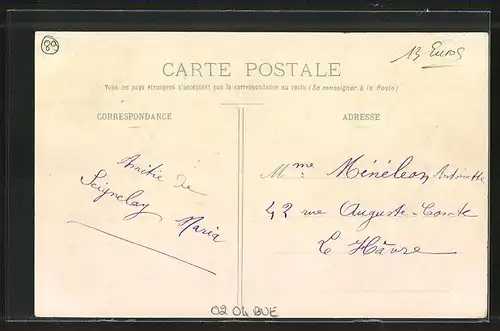 89
13 Euros
CARTE POSTALE
Tous les pays étrangers n'acceptent pas la correspondance au recto (Se renseigner à la Poste)
CORRESPONDANCE
ADRESSE
Amitié de
Seignelay
Maria
Mme Ménéléon Antoinette
42 rue Auguste-Comte
Le Hâvre
02 04 BUE